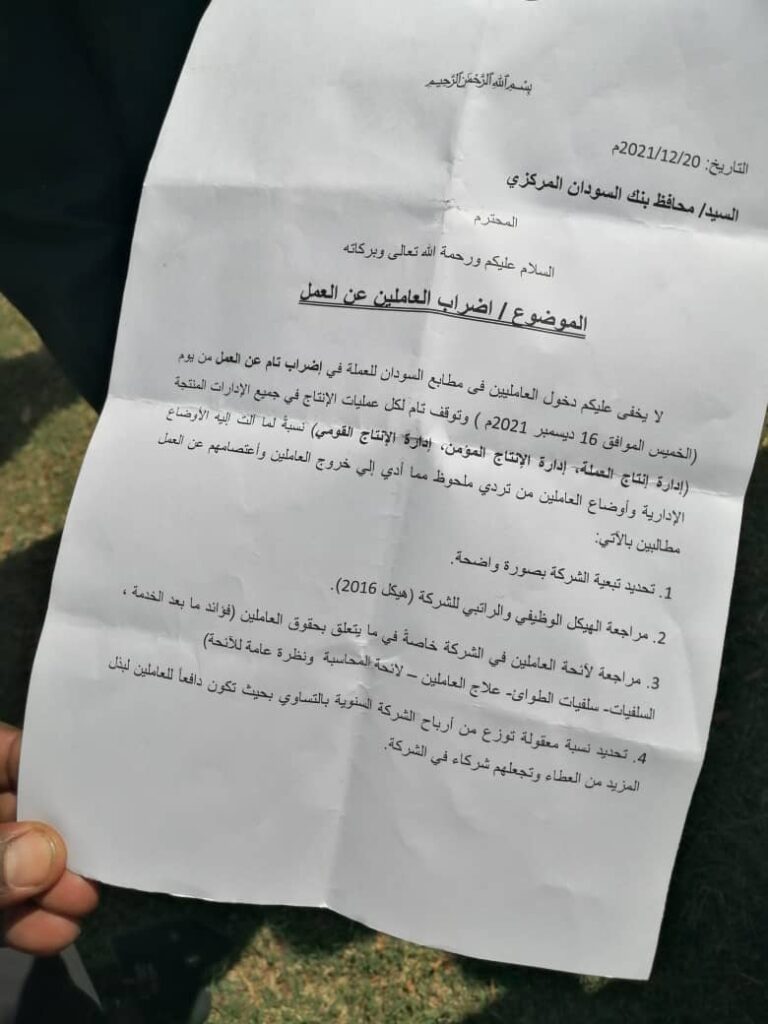 بسم الله الرحمن الرحيم
التاريخ: 2021/12/20م
السيد/ محافظ بنك السودان المركزي
المحترم
السلام عليكم ورحمة الله تعالى وبركاته
الموضوع / اضراب العاملين عن العمل
لا يخفى عليكم دخول العامليين فى مطابع السودان للعملة في إضراب تام عن العمل من يوم
(الخميس الموافق 16 ديسمبر 2021م ) وتوقف تام لكل عمليات الإنتاج في جميع الإدارات المنتجة
(إدارة إنتاج العملة، إدارة الإنتاج المؤمن، إدارة الإنتاج القومي) نسبةً لما آلت إليه الأوضاع
الإدارية وأوضاع العاملين من تردي ملحوظ مما أدي إلي خروج العاملين وأعتصامهم عن العمل
مطالبين بالآتي:
1. تحديد تبعية الشركة بصورة واضحة.
2. مراجعة الهيكل الوظيفي والراتبي للشركة (هيكل 2016).
3. مراجعة لأئحة العاملين في الشركة خاصةً في ما يتعلق بحقوق العاملين (فؤائد ما بعد الخدمة ،
السلفيات- سلفيات الطوائ- علاج العاملين – لائحة المحاسبة ونظرة عامة للأئحة)
4. تحديد نسبة معقولة توزع من أرباح الشركة السنوية بالتساوي بحيث تكون دافعاً للعاملين لبذل
المزيد من العطاء وتجعلهم شركاء في الشركة.